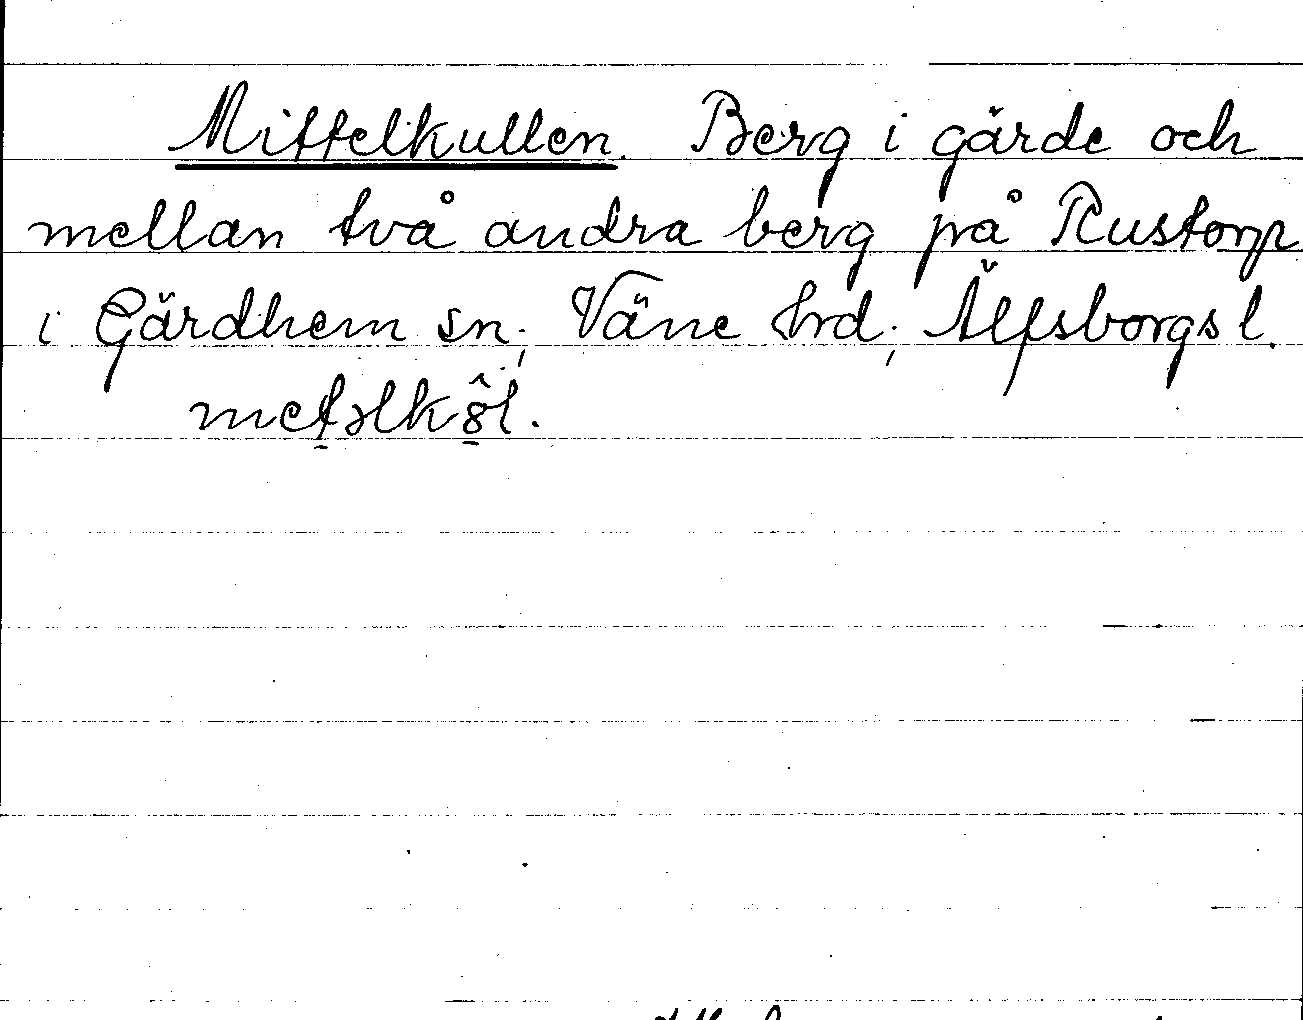 Mittelkullen. Berg i gärde och
mellan två andra berg på Rustorp
i Gärdhem sn; Väne hrd; Älfsborgs l.